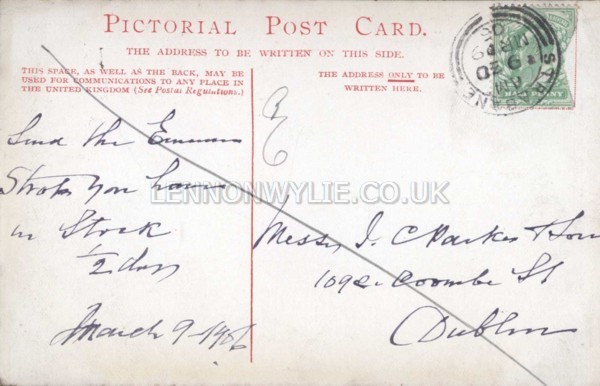 PICTORIAL POST CARD.
THE ADDRESS TO BE WRITTEN ON THIS SIDE.
THIS SPACE, AS WELL AS THE BACK, MAY BE
USED FOR COMMUNICATIONS TO ANY PLACE IN
THE UNITED KINGDOM (See Postal Regulations.)
THE ADDRESS ONLY TO BE
WRITTEN HERE.
HALFPENNY
Send the
you have
in Stock
1/2 doz
March 9-1906
Messrs J. C Parkes & Son
109 Coombe St
Dublin
LENNONWYLIE.CO.UK